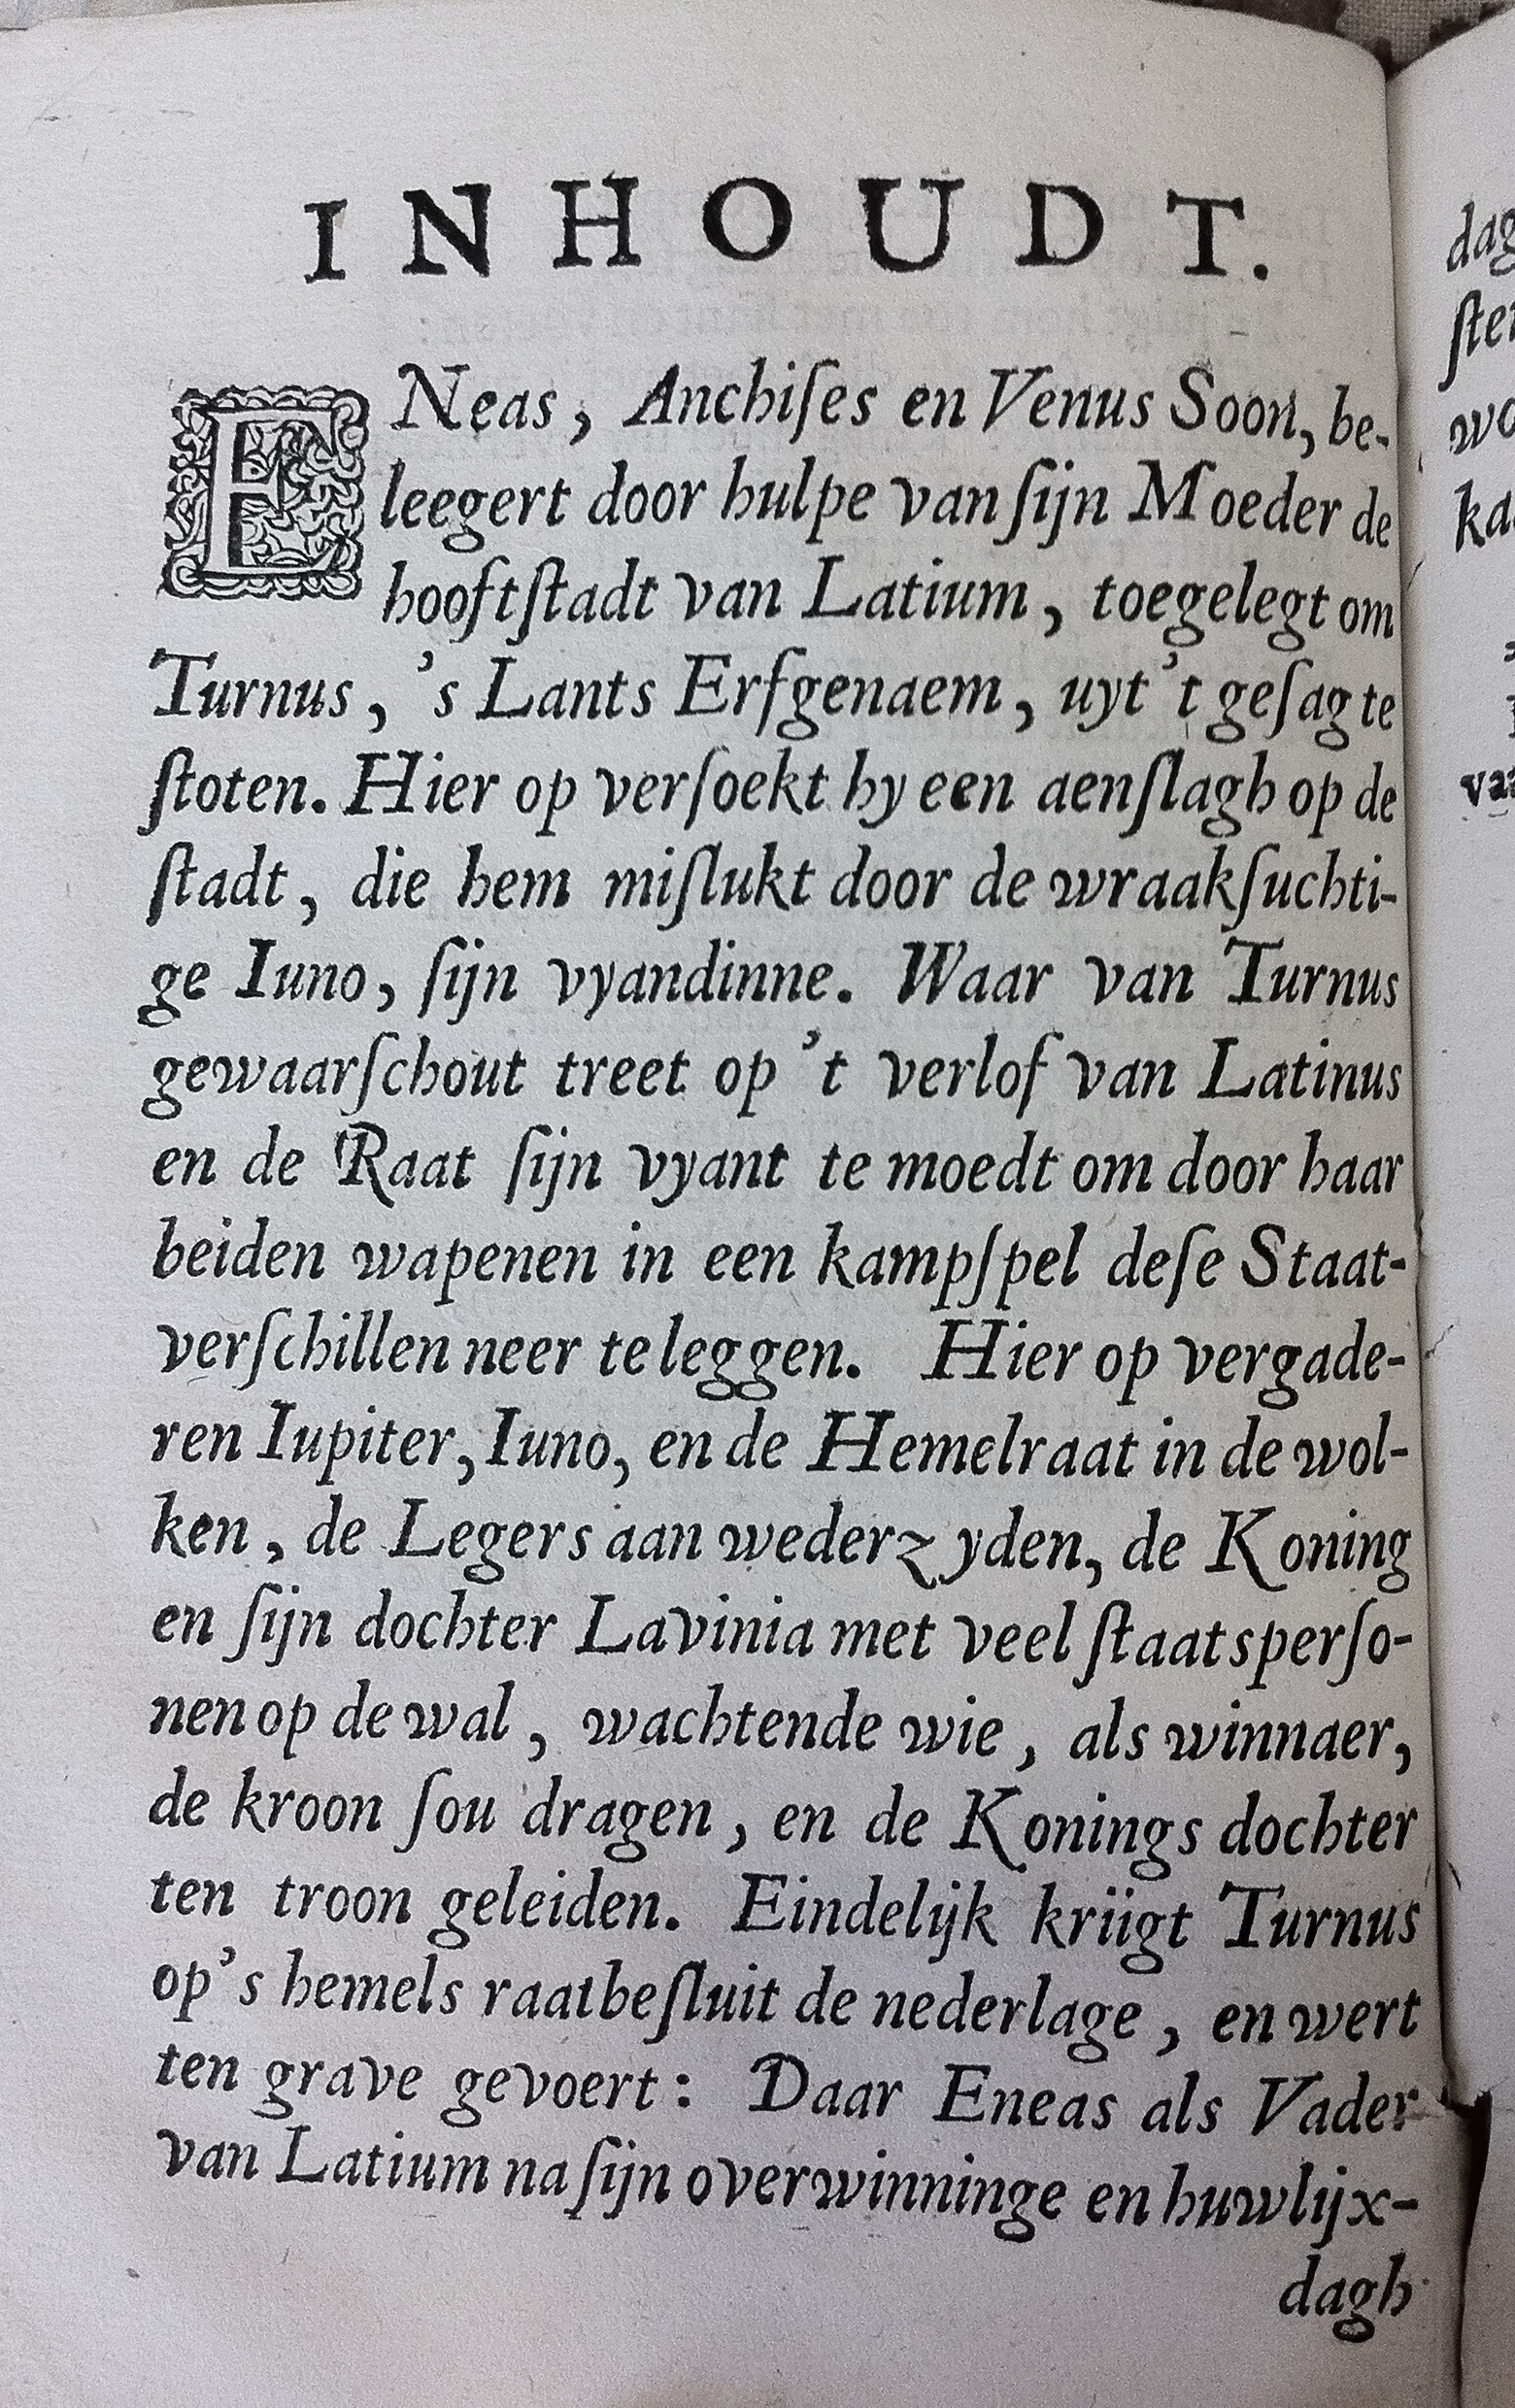 INHOUDT.
ENeas, Anchiſes en Venus Soon, be-
leegert door hulpe van ſijn Moeder de
hooftſtadt van Latium, toegelegt om
Turnus, 's Lants Erfgenaem, uyt 't geſag te
ſtoten. Hier op verſoekt hy een aenſlagh op de
ſtadt, die hem miſlukt door de wraakſuchti-
ge Iuno, ſijn vyandinne. Waar van Turnus
gewaarſchout treet op 't verlof van Latinus
en de Raat ſijn vyant te moedt om door haar
beiden wapenen in een kampſpel deſe Staat-
verſchillen neer te leggen. Hier op vergade-
ren Iupiter, Iuno, en de Hemelraat in de wol-
ken, de Legers aan wederzyden, de Koning
en ſijn dochter Lavinia met veel ſtaatsperſo-
nen op de wal, wachtende wie, als winnaer,
de kroon ſou dragen, en de Konings dochter
ten troon geleiden. Eindelijk kriigt Turnus
op 's hemels raatbeſluit de nederlage, en wert
ten grave gevoert: Daar Eneas als Vader
van Latium na ſijn overwinninge en huwlijx-
dagh